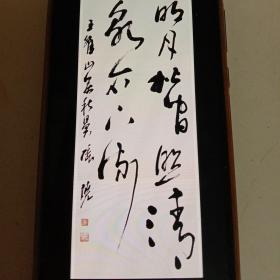 明月松間照清
泉石上流
王維山居秋暝